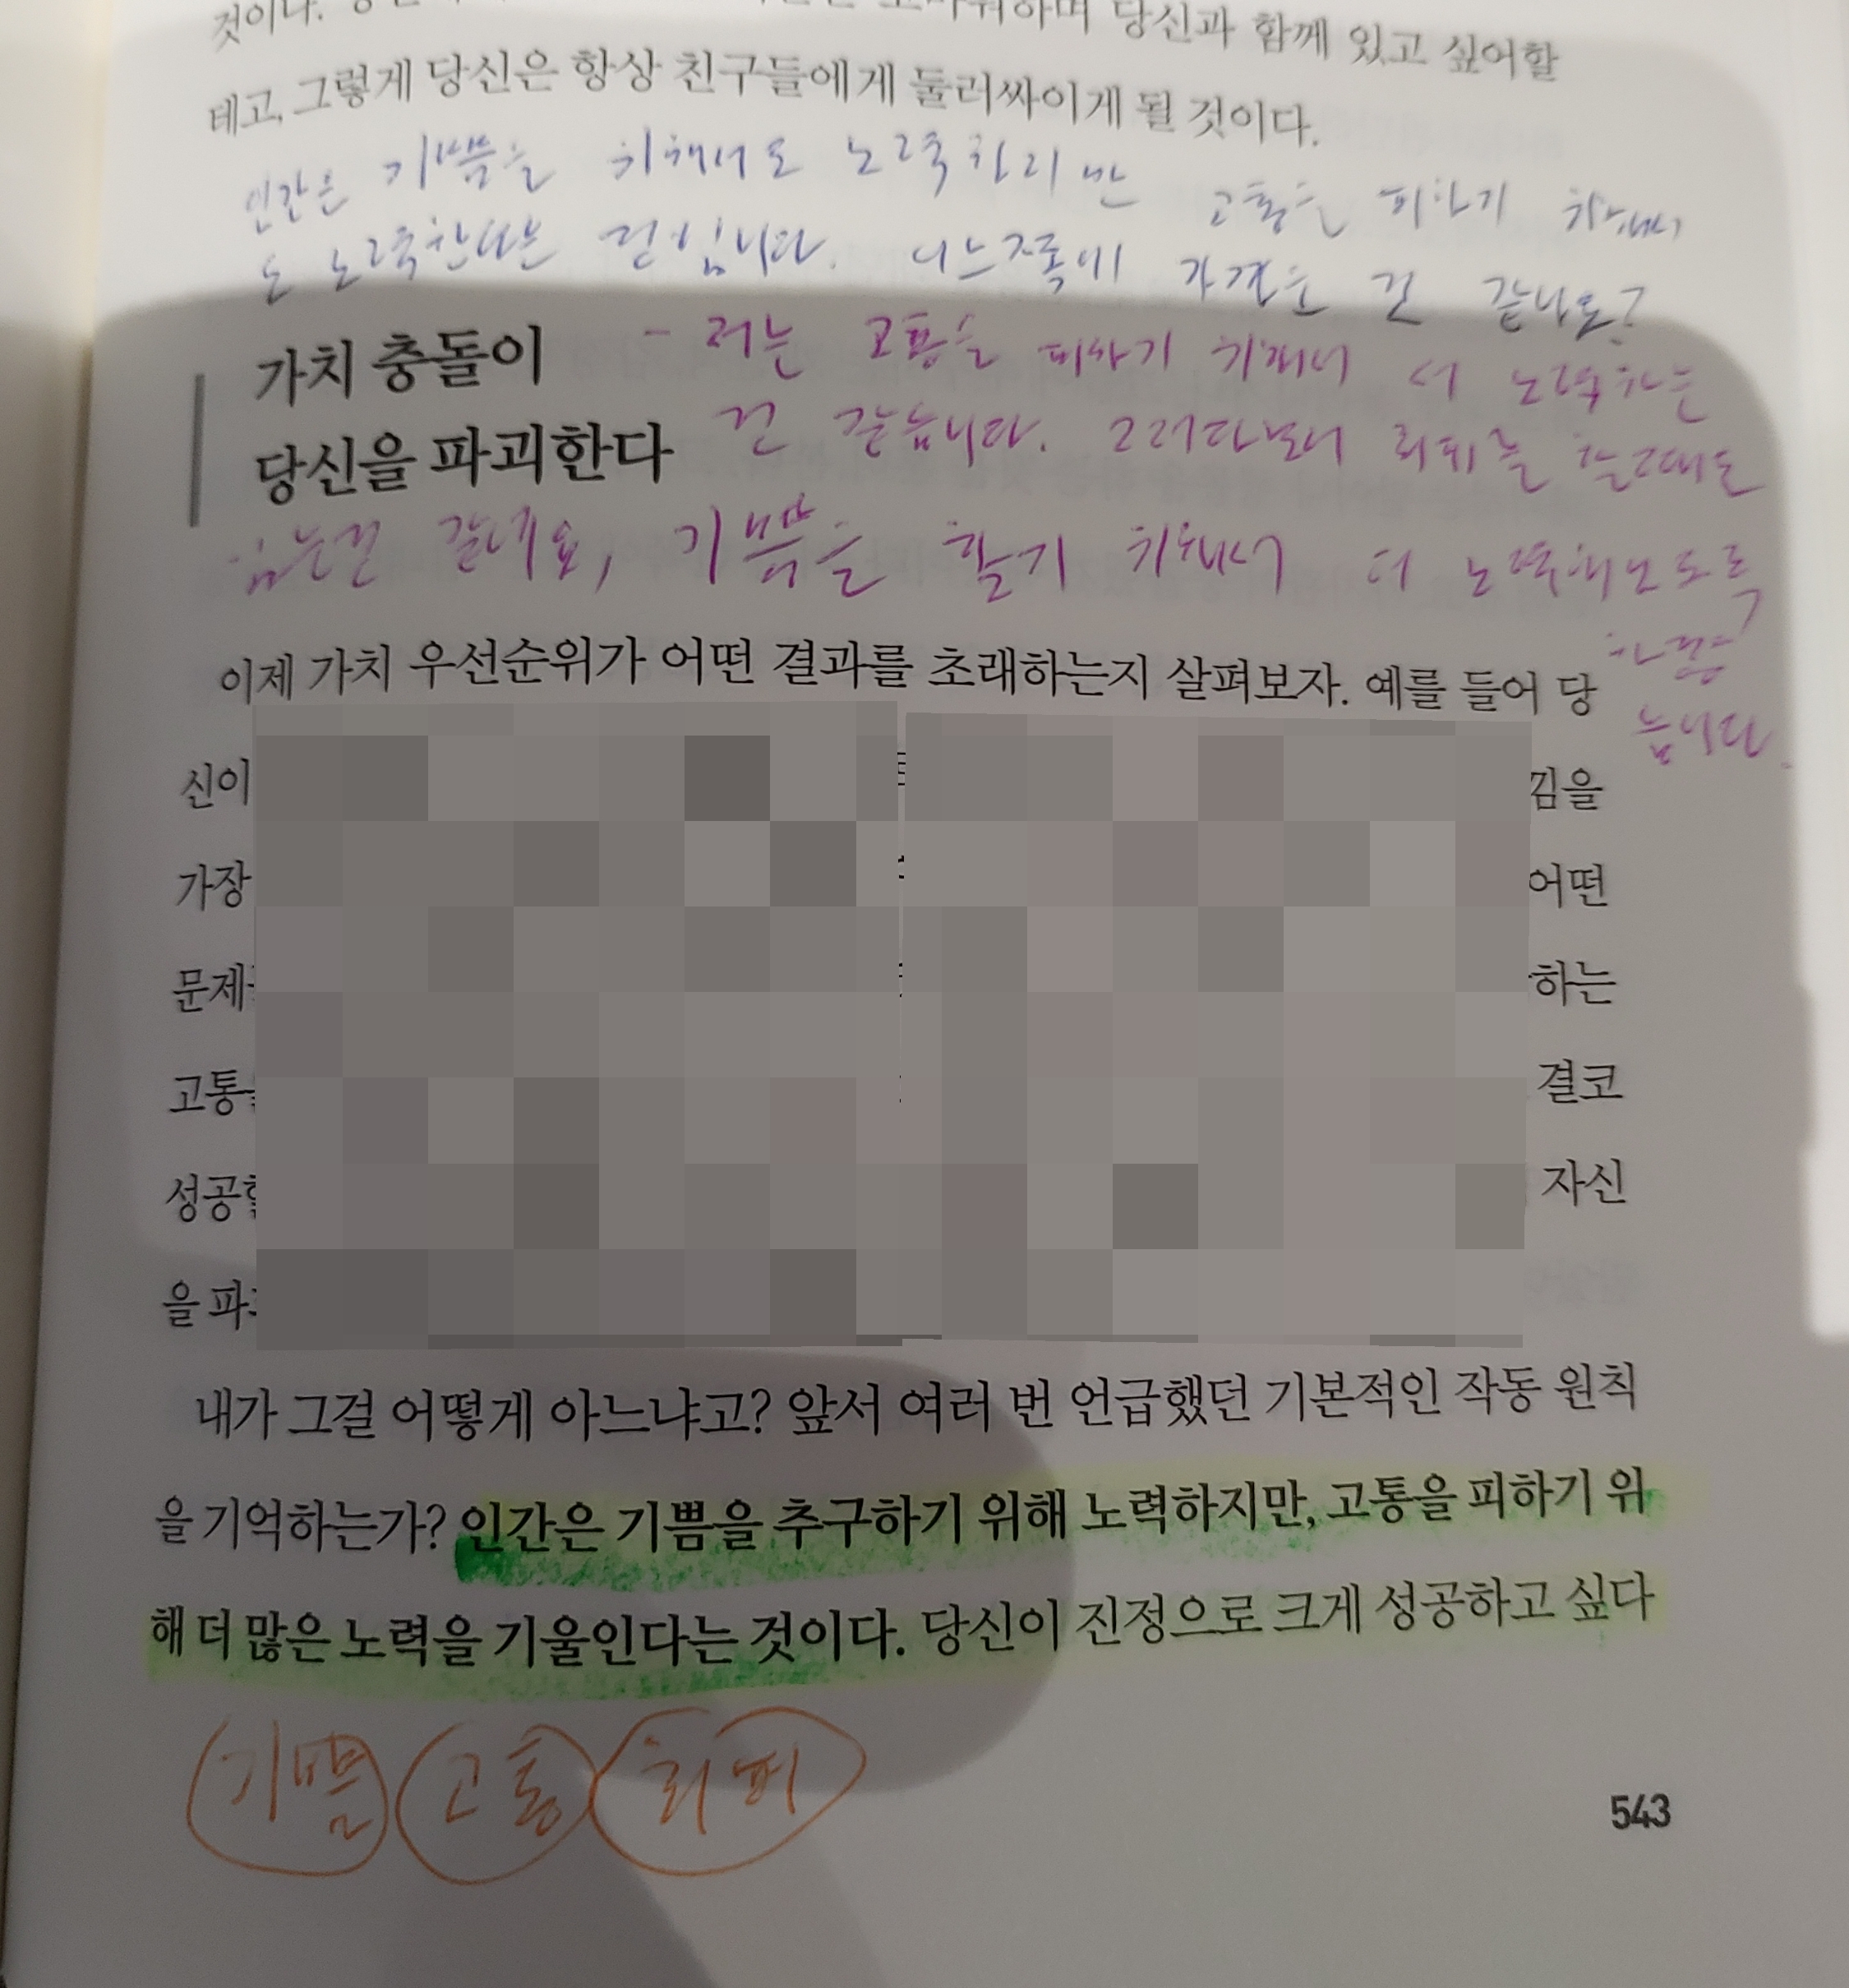 당신과 함께 있고 싶어할
테고, 그렇게 당신은 항상 친구들에게 둘러싸이게 될 것이다.
인간은 기쁨을 위해서도 노력하지만 고통을 피하기 위해서
도 노력한다는 것입니다. 어느쪽에 가까운 것 같나요?
가치 충돌이
당신을 파괴한다
- 저는 고통을 피하기 위해서 더 노력하는
것 같습니다. 그러다보니 회피를 할때도
있는것 같네요, 기쁨을 위해서 더 노력해보도록
하겠
습니다.
이제 가치 우선순위가 어떤 결과를 초래하는지 살펴보자. 예를 들어 당
신이 낌을
가장 어떤
문제 하는
고통 결코
성공 자신
을 파
내가 그걸 어떻게 아느냐고? 앞서 여러 번 언급했던 기본적인 작동 원칙
을 기억하는가? 인간은 기쁨을 추구하기 위해 노력하지만, 고통을 피하기 위
해 더 많은 노력을 기울인다는 것이다. 당신이 진정으로 크게 성공하고 싶다
기쁨 고통 회피
543